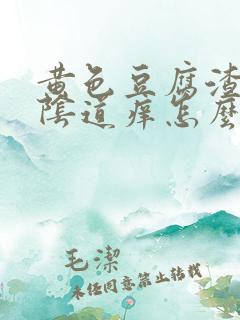 黄色豆腐渣
陰道痒怎麼
毛潔
未经同意禁止转载